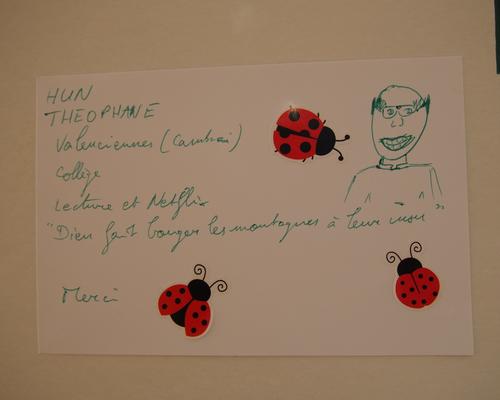 HUN
THEOPHANE
Valenciennes (Cambrai)
Collège
Lecture et Netflix
"Dieu fait bouger les montagnes à leur insu"
Merci